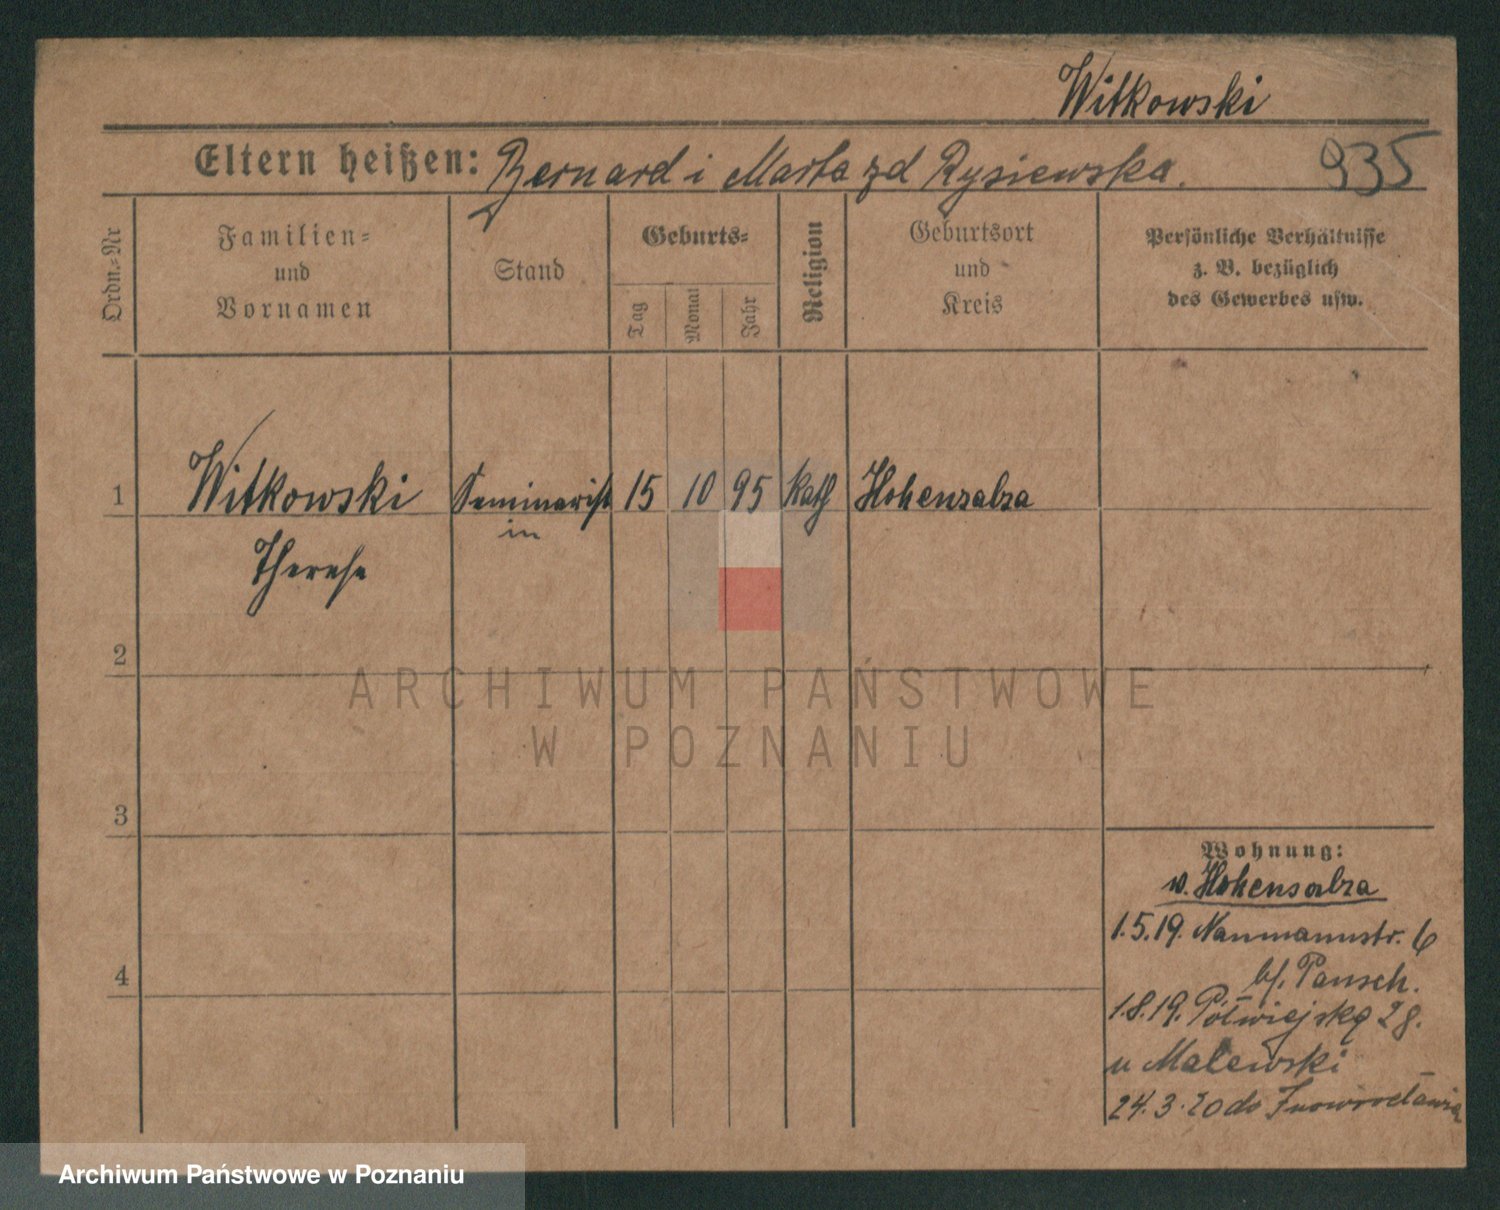 Witkowski
Eltern heißen: Bernard i Marta zd Rysiewska.
935
Ordn.-Nr
Familien-
und
Vornamen
Stand
Geburts-
Tag
Monat
Jahr
Religion
Geburtsort
und
Kreis
Persönliche Verhältnisse
z. B. bezüglich
des Gewerbes usw.
1 Witkowski Seminarist 15 10 95 kath Hohensalza
in
Therese
2
3
4
Wohnung:
v. Hohensalza
1.5.19. Naumannstr. 6
bf. Pansch.
1.8.19. Półwiejska 28.
u Malewski
24.3.20 do Inowrocławia
ARCHIWUM PAŃSTWOWE
W POZNANIU
Archiwum Państwowe w Poznaniu